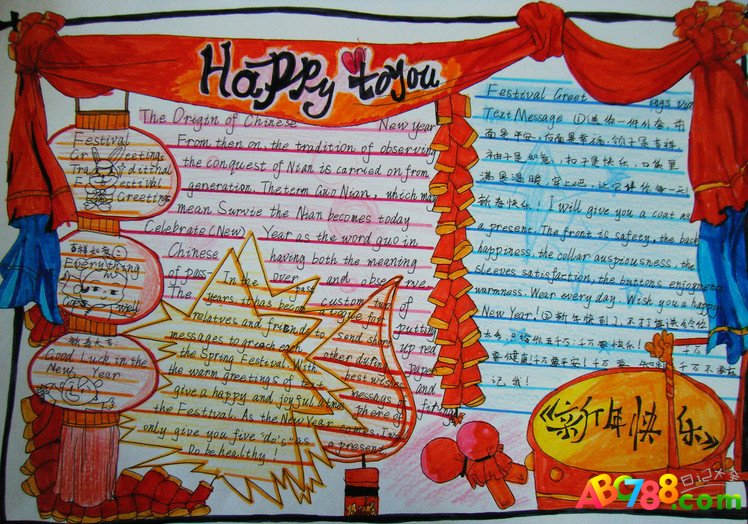 Happy to you
Festival
Greetings
Traditional
Festival
Greeting
Everything
Goes well
新春大吉:
Good Luck in the
New Year
The Origin of Chinese New year
From then on, the tradition of observing
the conquest of Nian is carried on from
generation. Theterm Guo Nian, which may
mean Survie the Nian becomes today
Celebrate (New) Year as the word guo in
Chinese having both the meaning
of pass over and observe.
The custom of
putting
up red
paper
and
In the past
years, it has become a vogue for
relatives and friends to send short
messages to greet each other during
the Spring Festival. With best wishes
the warm greetings of
give a happy and joyful
the Festival. As the New Year comes, I've
only give you five "do's" as a present,
Do be healthy!
Festival Greetings via
Text Message ①送你一件外套,前
面是平安,后面是幸福,领子是吉祥,
袖子是如意,扣子是快乐,口袋里
满是温暖,穿上吧,让它伴你每一天!
新春快乐! I will give you a coat as
a present. The front is safety, the back
happiness, the collar auspiciousness, the
sleeves satisfaction, the buttons enjoyment
warmness. Wear every day. Wish you a happy
New Year! ②新年快到了,不打算送给你
太多,只给你五千万:千万要快乐!千万
要健康!千万要平安!千万要知足!千万不要忘
记我!
《新年快乐》
ABC788.com